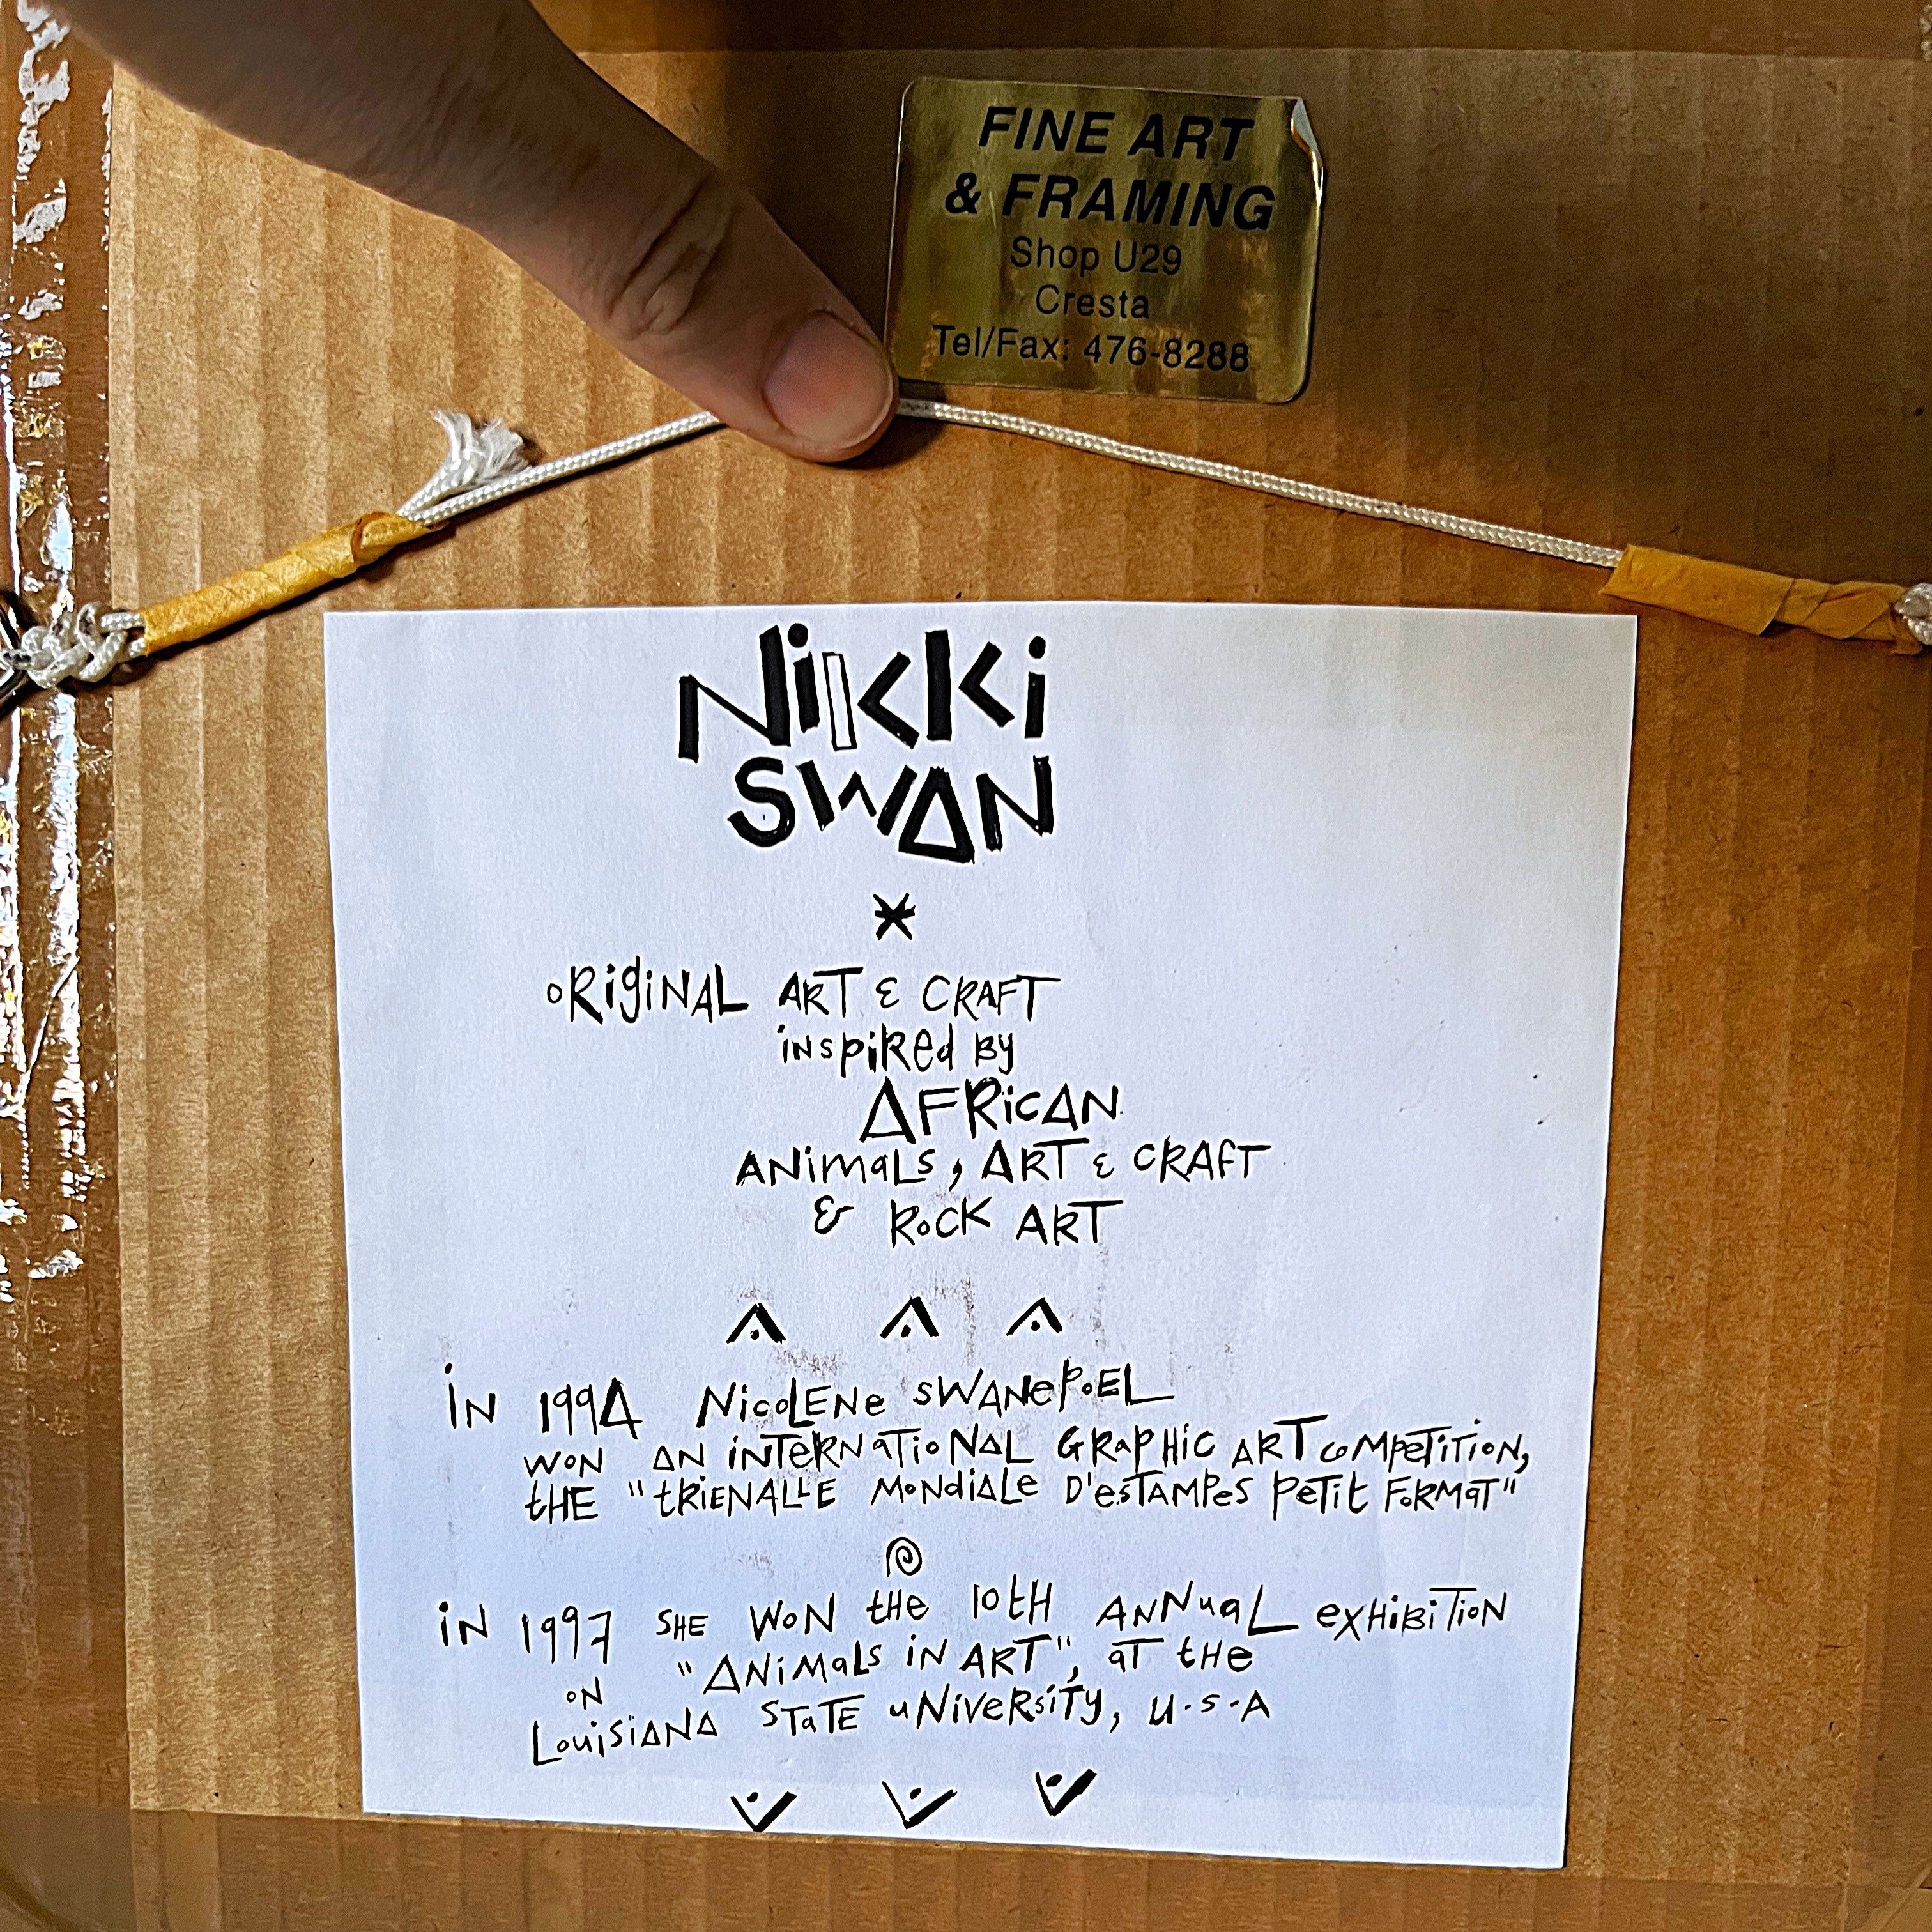 FINE ART
& FRAMING
Shop U29
Cresta
Tel/Fax: 476-8288
NiKKi
SWAN
ORiginAL ART & CRAFT
inspiRed By
AFRicAN
ANimaLs, ART & CRAfT
& RocK ART
iN 1994 NicoLENe SWANePoEL
WoN AN iNTeRNaTioNAL GRaPHic ART coMPeTiTioN,
tHE "tRiENALLE MoNdiALe D'esTAMPes PeTit FoRMaT"
iN 1997 SHE WoN tHe 10tH ANNuaL eXHiBiTioN
oN "ANiMaLs iN ART", aT tHe
LouisiANA STaTE uNiVeRsiTy, U.S.A